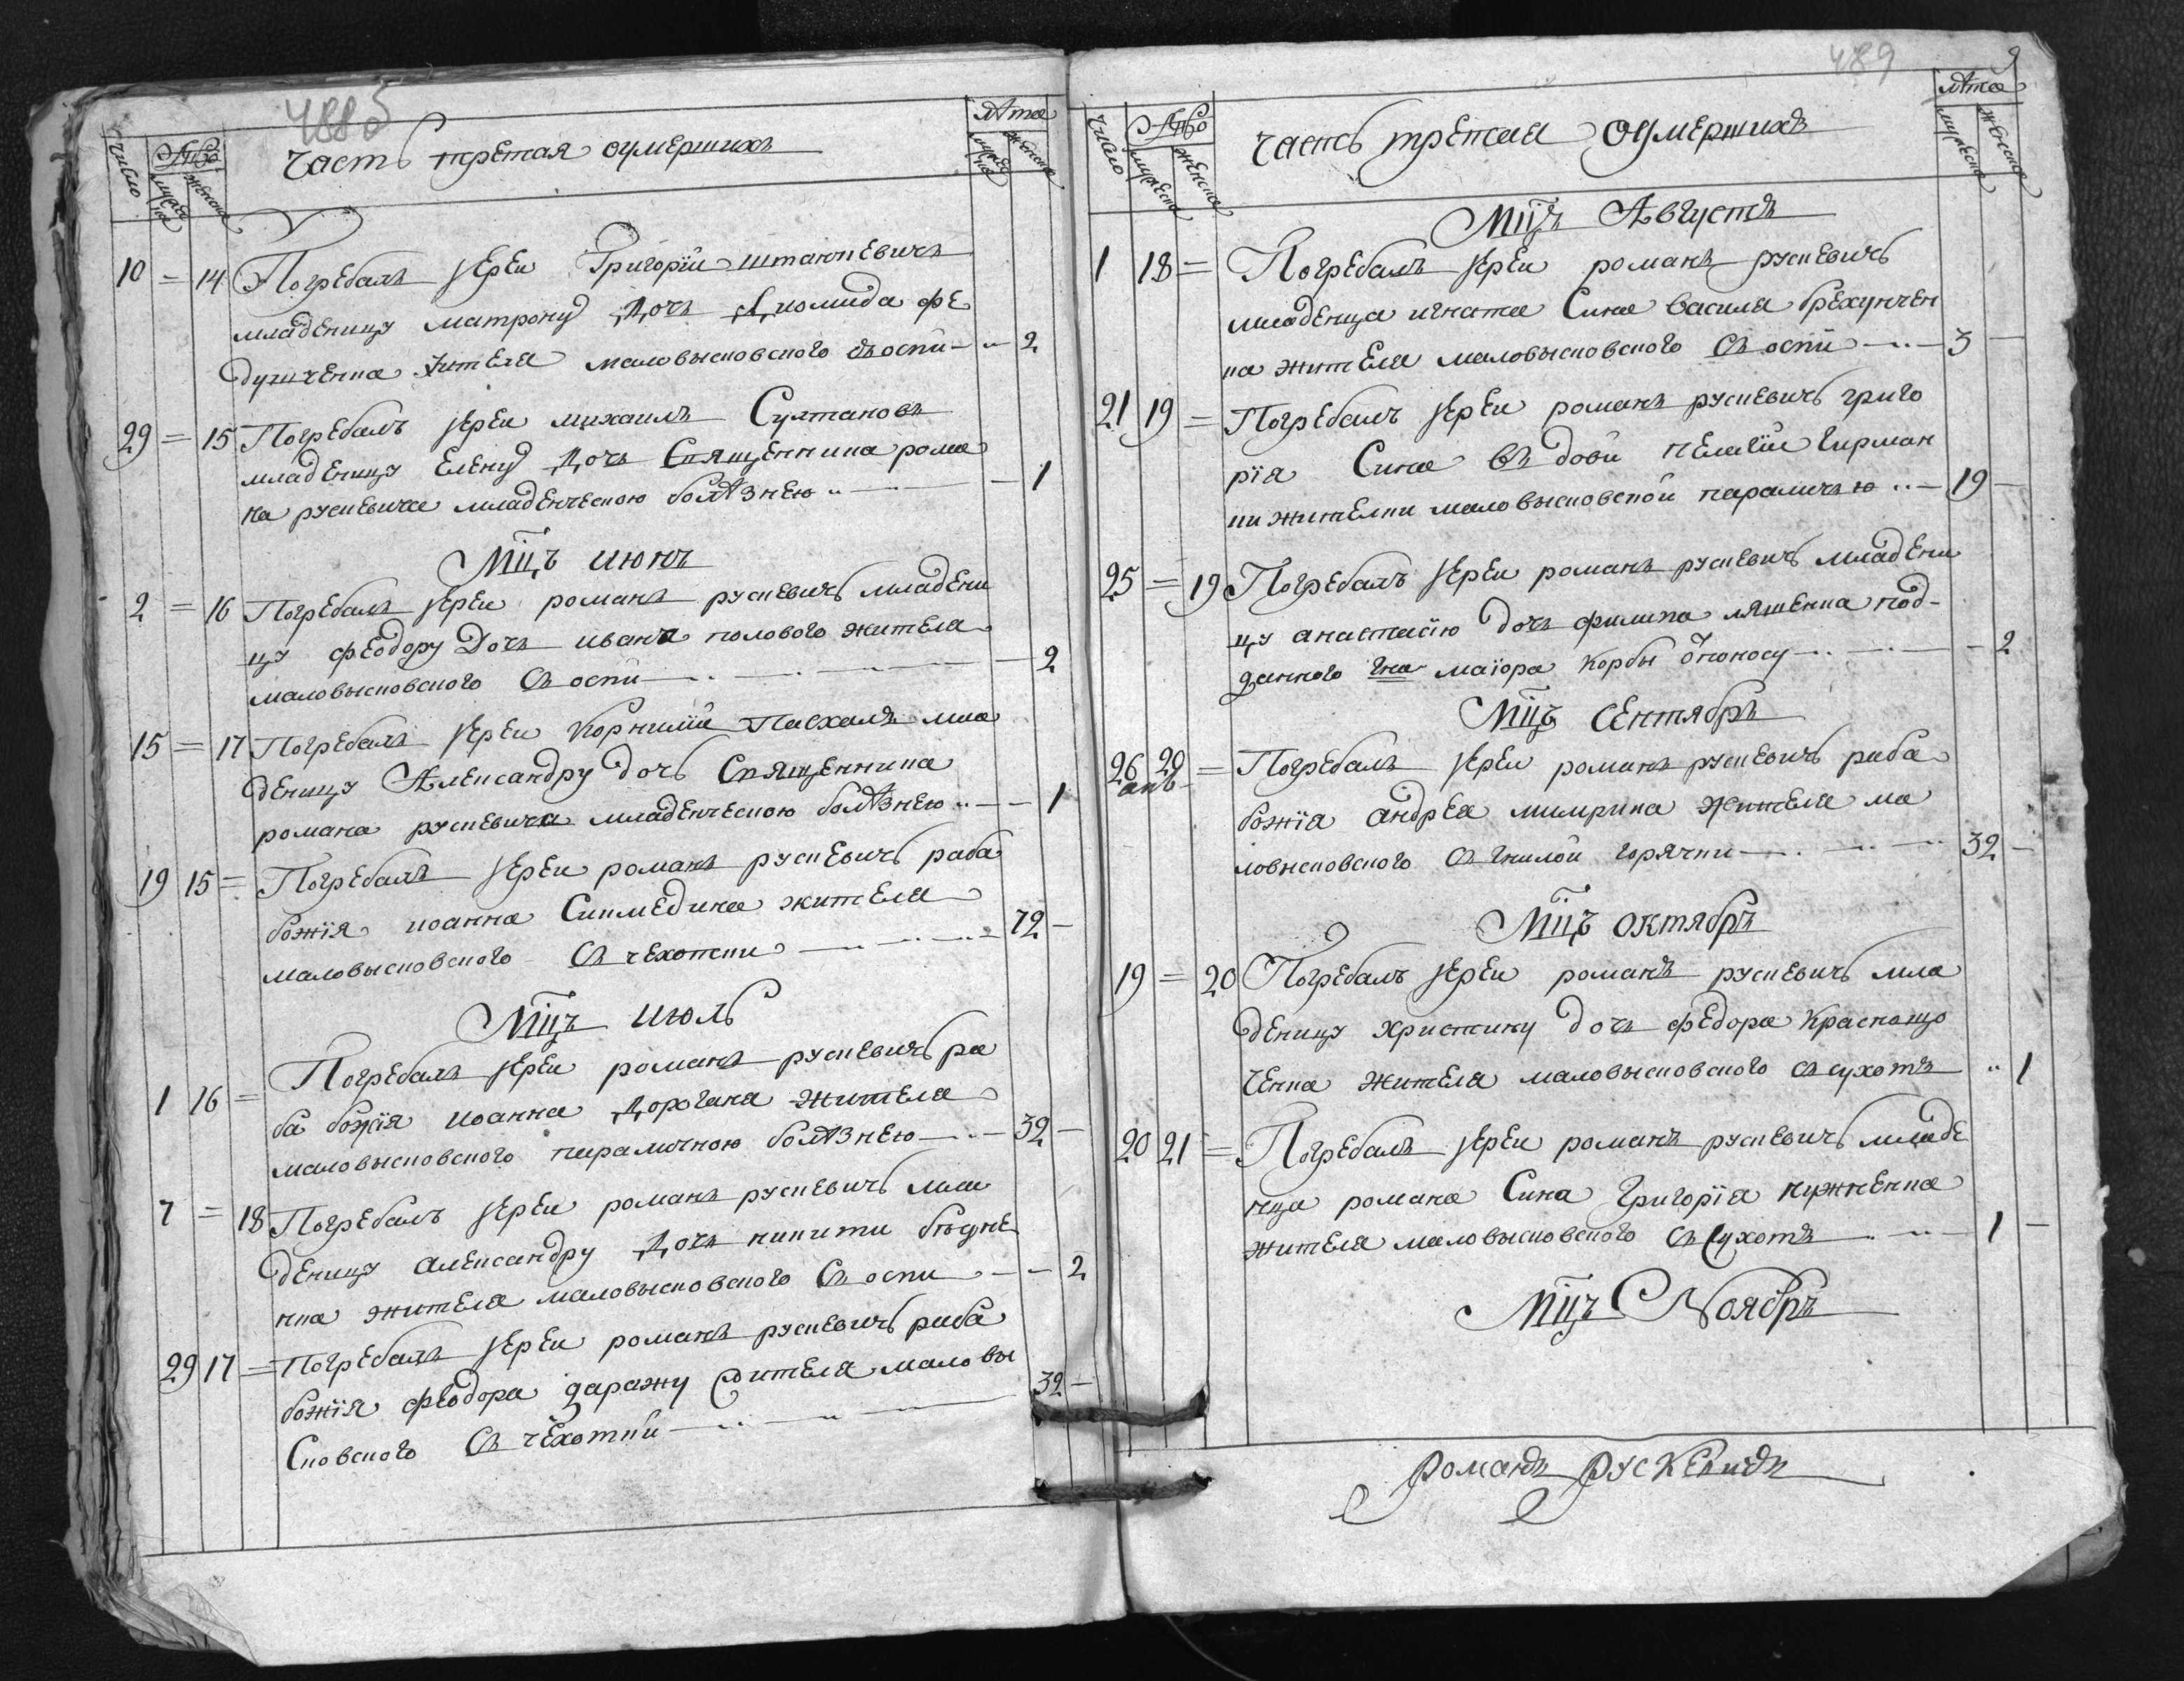 488об
число
мужеска
женска
часть третая оумершихъ
лѣта
мужеска
женска
10 = 14 Погребалъ Іереи Григорїи штанкевичъ
младеницу матрону дочь диомида фе
дученка жителя маловысковского съ оспи 2
29 = 15 Погребалъ Іереи михаилъ Султановъ
младеницу Елену дочь Священника рома
на рускевича младенческою болѣзнею 1
Мцъ июнъ
2 = 16 Погребалъ Іереи романъ рускевичъ младени
цу феодору дочь ивана полового жителя
маловысковского съ оспи 2
15 = 17 Погребалъ Іереи Корнилїи Пасхалъ мла
деницу Александру дочь Священника
романа рускевича младенческою болѣзнею 1
19 15 = Погребалъ Іереи романъ рускевичъ раба
божїя иоанна жителя
маловысковского съ чехотки 72
Мцъ июль
1 16 = Погребалъ Іереи романъ рускевичъ ра
ба божїя иоанна дорогана жителя
маловысковского параличною болѣзнею 32
7 = 18 Погребалъ Іереи романъ рускевичъ мла
деницу александру дочь никити бѣдне
нка жителя маловысковского съ оспи 2
29 17 = Погребалъ Іереи романъ рускевичъ раба
божїя феодора даражу жителя маловы
сковского съ чехотки 32
489
9
число
мужеска
женска
часть третая оумершихъ
лѣта
мужеска
женска
Мцъ Августъ
1 18 = Погребалъ Іереи романъ рускевичъ
младенца игната Сина василя брехунчен
ка жителя маловысковского съ оспи 3
21 19 = Погребалъ Іереи романъ рускевичъ григо
рїя Сина въдови пелагїи Гирман
ки жителки маловысковской параличью 19
25 = 19 Погребалъ Іереи романъ рускевичъ младени
цу анастасїю дочь филипа ляшенка под-
данного гна маїора Корбы ѿ поносу 2
Мцъ Сентябръ
26 20 = Погребалъ Іереи романъ рускевичъ раба
божїя андрея мимрика жителя ма
ловысковского съ гнилой горячки 32
Мцъ октябръ
19 = 20 Погребалъ Іереи романъ рускевичъ мла
деницу христину дочь федора Краснощо
ченка жителя маловысковского съ сухотъ 1
20 21 = Погребалъ Іереи романъ рускевичъ младе
нца романа Сина Григорїя нужненка
жителя маловысковского съ Сухотъ 1
Мцъ Ноябръ
Романъ Рускевичъ